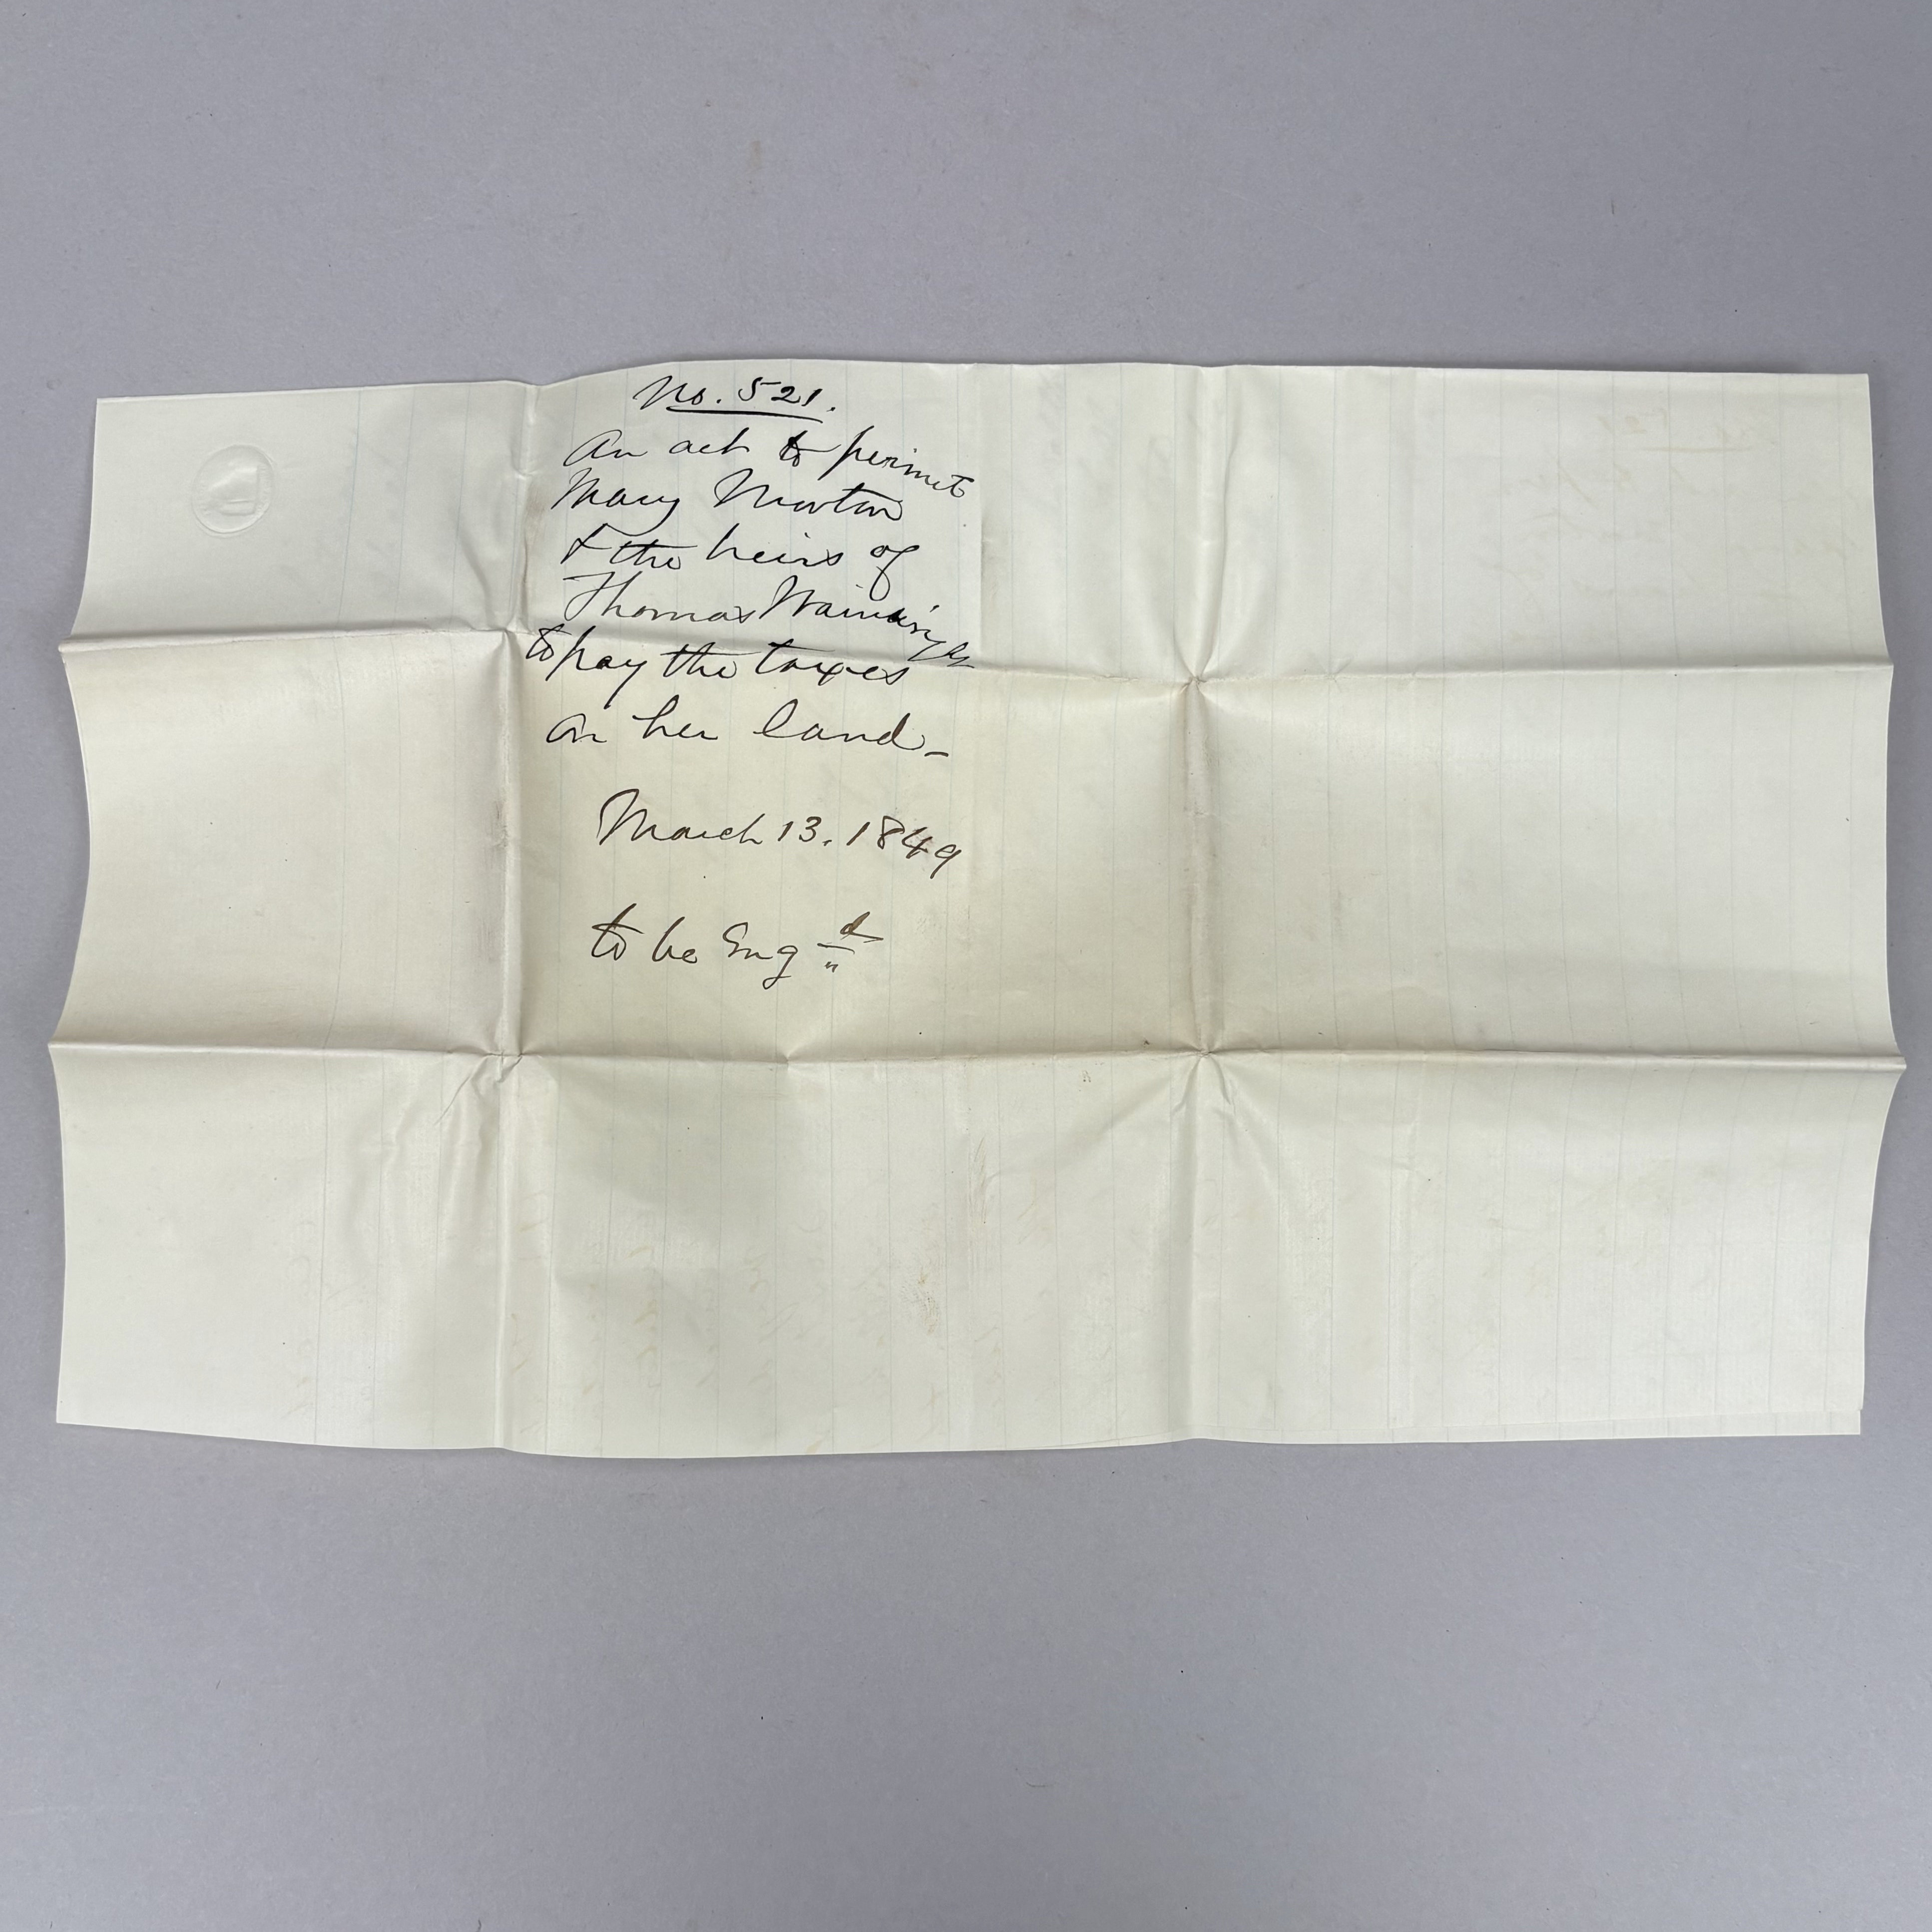 No. 521.
An act to permit
Mary Morton
& the heirs of
Thomas
to pay the taxes
on her land_
March 13. 1849
to be Eng d